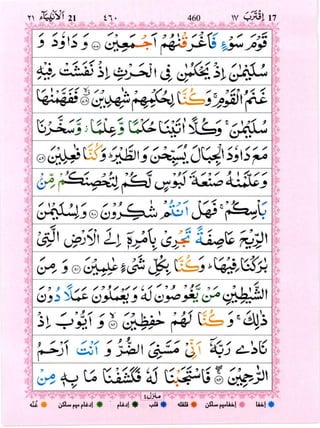 اِقْتَرَبَ ١٧ 17 460 ٤٦٠ اَلْاَنْبِيَاء ٢١ 21
قَوْمَ سَوْءٍ فَاَغْرَقْنٰهُمْ اَجْمَعِيْنَ ۝۷۷ وَ دَاوٗدَ وَ
سُلَيْمٰنَ اِذْ يَحْكُمٰنِ فِي الْحَرْثِ اِذْ نَفَشَتْ فِيْهِ
غَنَمُ الْقَوْمِ ۚ وَ كُنَّا لِحُكْمِهِمْ شٰهِدِيْنَ ۝۷۸ فَفَهَّمْنٰهَا
سُلَيْمٰنَ ۚ وَ كُلًّا اٰتَيْنَا حُكْمًا وَّ عِلْمًا ؗ وَّ سَخَّرْنَا
مَعَ دَاوٗدَ الْجِبَالَ يُسَبِّحْنَ وَ الطَّيْرَ ؕ وَ كُنَّا فٰعِلِيْنَ ۝۷۹
وَ عَلَّمْنٰهُ صَنْعَةَ لَبُوْسٍ لَّكُمْ لِتُحْصِنَكُمْ مِّنْ
بَاْسِكُمْ ۚ فَهَلْ اَنْتُمْ شٰكِرُوْنَ ۝۸۰ وَ لِسُلَيْمٰنَ
الرِّيْحَ عَاصِفَةً تَجْرِيْ بِاَمْرِهٖۤ اِلَى الْاَرْضِ الَّتِيْ
بٰرَكْنَا فِيْهَا ؕ وَ كُنَّا بِكُلِّ شَيْءٍ عٰلِمِيْنَ ۝۸۱ وَ مِنَ
الشَّيٰطِيْنِ مَنْ يَّغُوْصُوْنَ لَهٗ وَ يَعْمَلُوْنَ عَمَلًا دُوْنَ
ذٰلِكَ ۚ وَ كُنَّا لَهُمْ حٰفِظِيْنَ ۝۸۲ وَ اَيُّوْبَ اِذْ
نَادٰى رَبَّهٗۤ اَنِّيْ مَسَّنِيَ الضُّرُّ وَ اَنْتَ اَرْحَمُ
الرّٰحِمِيْنَ ۝۸۳ فَاسْتَجَبْنَا لَهٗ فَكَشَفْنَا مَا بِهٖ مِنْ
منزل٤
اخفا اخفا میم ساکن قلقلہ قلب ادغام ادغام میم ساکن غنہ